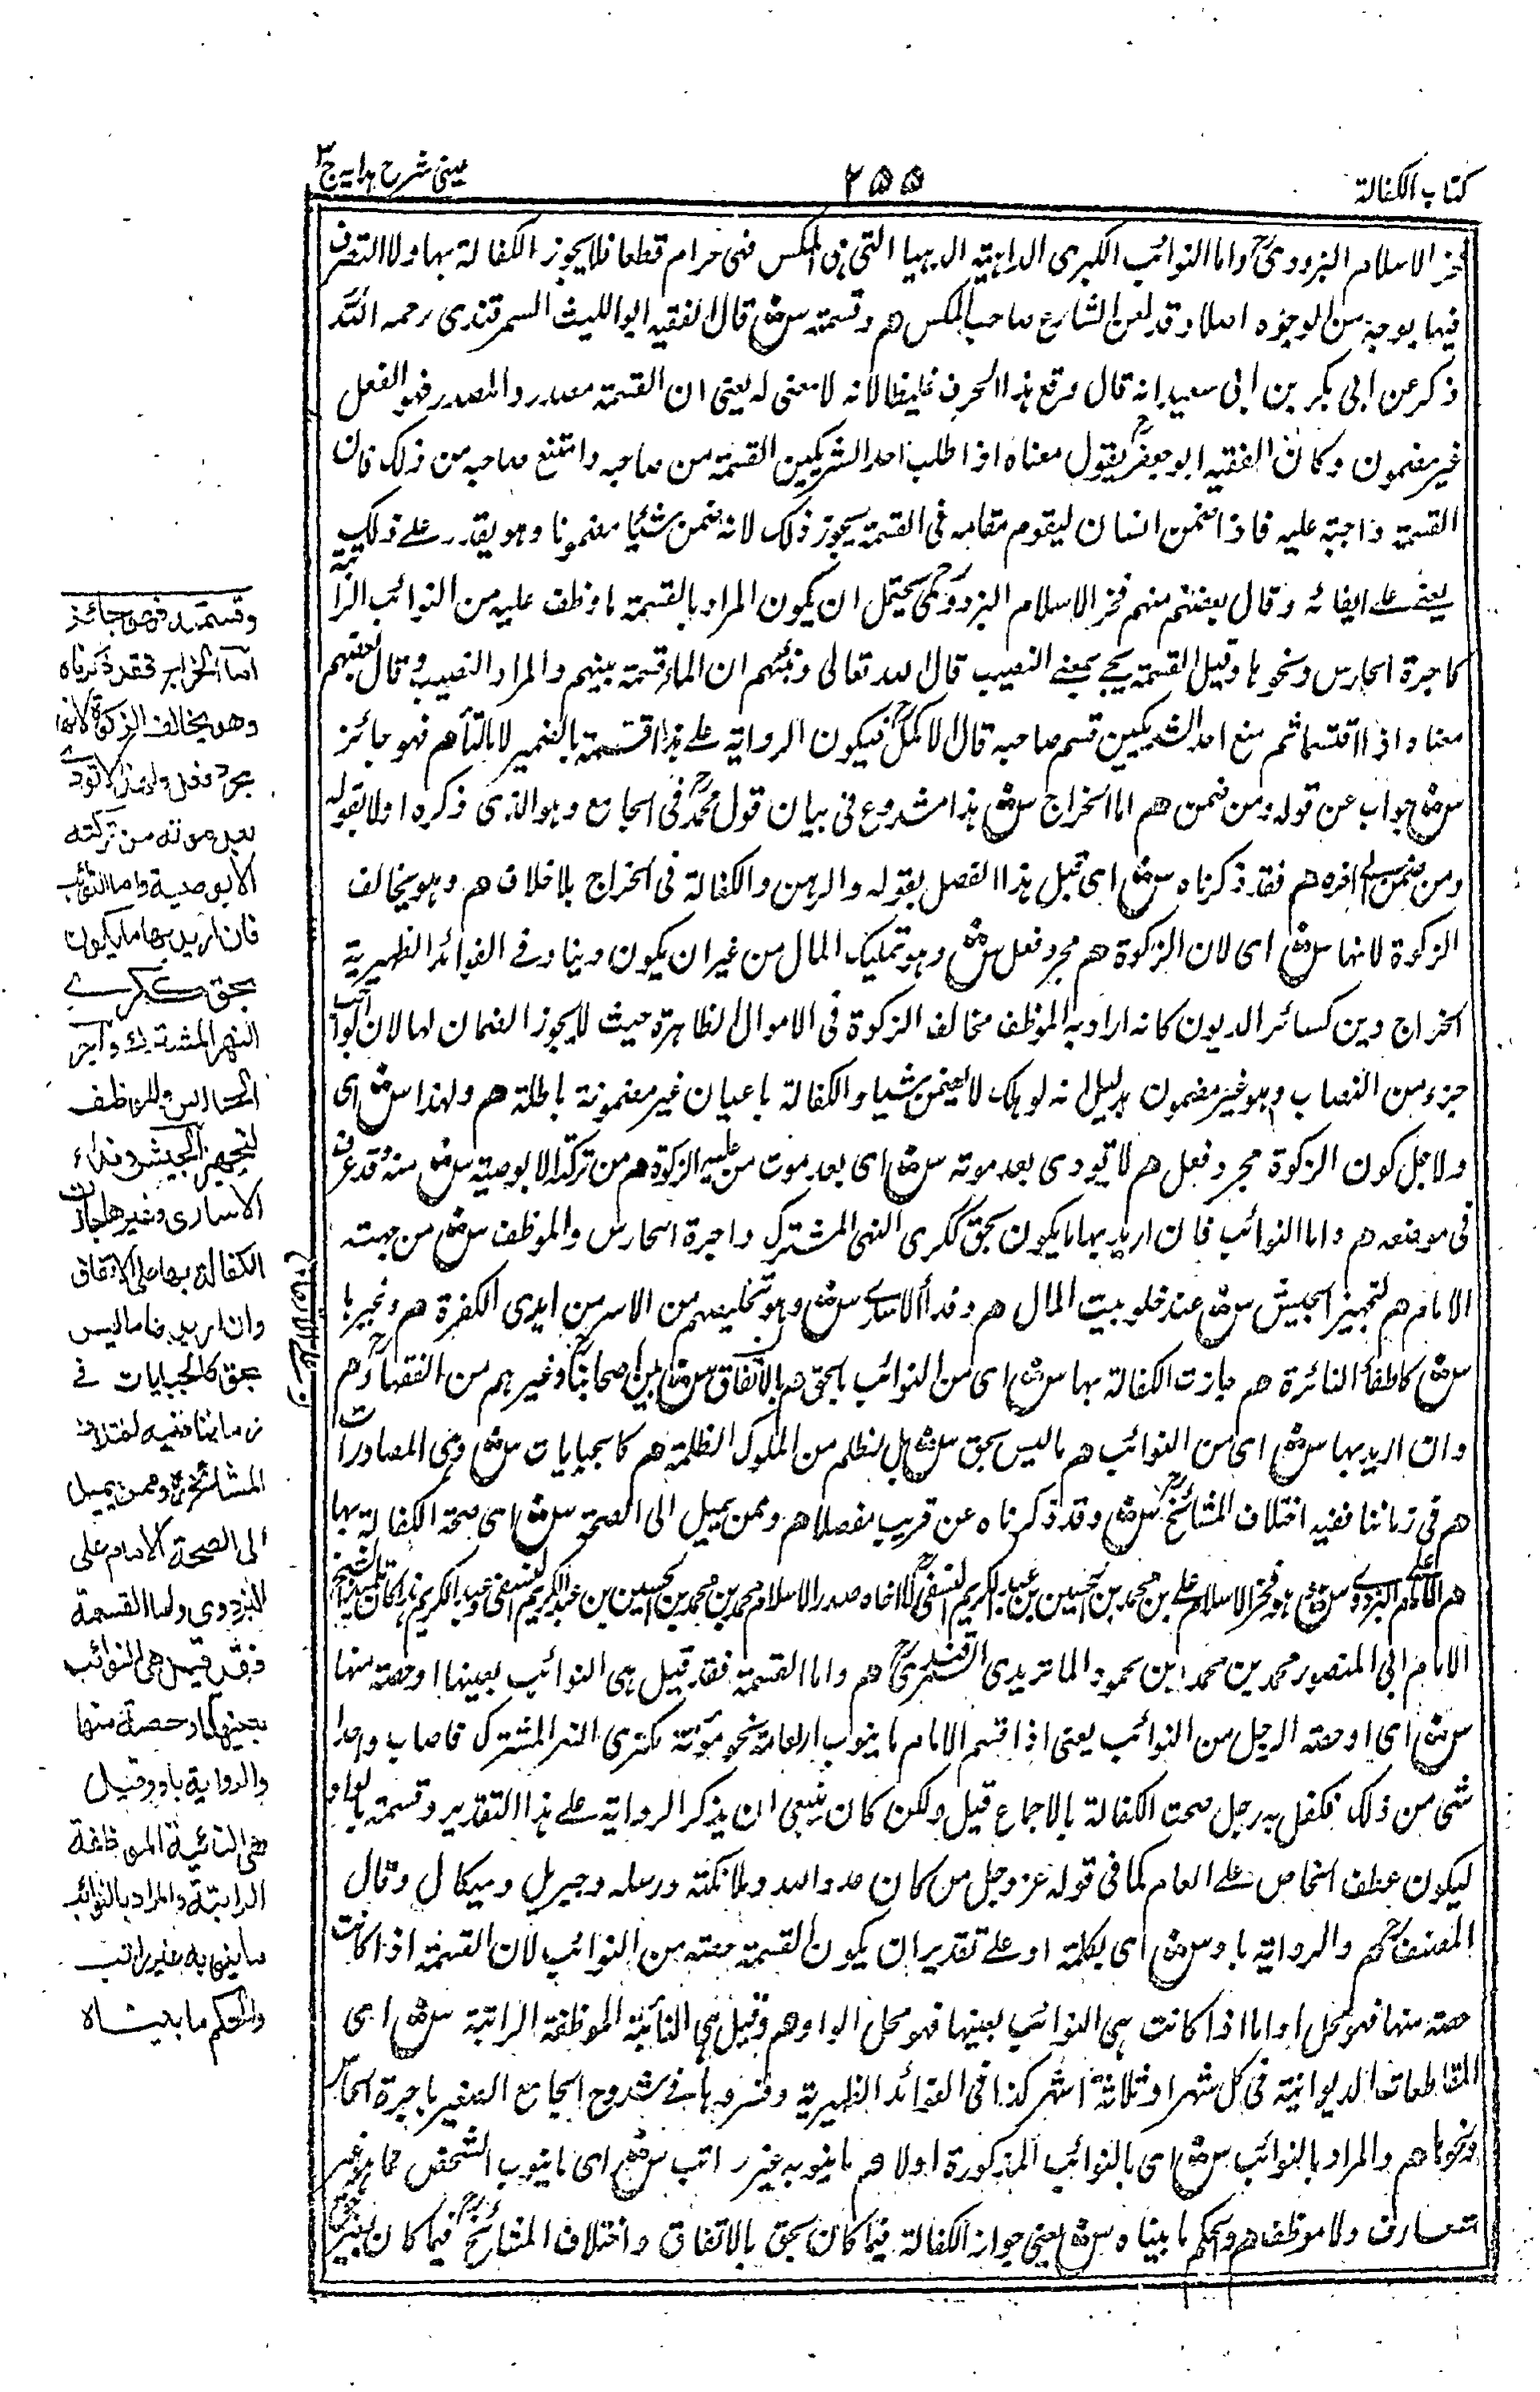 كتاب الكفالة
٢٥٥
عينى شرح هدايه ج ٣
فخر الاسلام البزدوىؒ واما النوائب الكبرى الداهية الدهيا التى هى المكس فهى حرام قطعا فلا يجوز الكفالة بها ولا التصرف
فيها بوجه من الوجوه اصلا وقد لعن الشارع صاحب المكس هم وقسمته ش قال الفقيه ابو الليث السمرقندى رحمه الله
ذكر عن ابى بكر بن ابى سعيد انه قال وقع هذا الحرف غليظا لانه لا معنى له يعنى ان القسمة مصدر والمصدر فهو الفعل
غير مضمون وكان الفقيه ابو جعفرؒ يقول معناه اذا طلب احد الشريكين القسمة من صاحبه وامتنع صاحبه من ذلك فان
القسمة واجبة عليه فاذا ضمن انسان ليقوم مقامه فى القسمة يجوز ذلك لانه ضمن شئيا مضمونا وهو يقدر على ذلك
يعنے علے ايفائه وقال بعضهم منهم فخر الاسلام البزدوىؒ يحتمل ان يكون المراد بالقسمة ما وظف عليه من النوائب الراتبة
كاجرة الحارس ونحوها وقيل القسمة يجے بمعنے النصيب قال الله تعالى ونبئهم ان الماء قسمة بينهم والمراد النصيب وقال بعضهم
معناه اذا اقتسما ثم منع احد الشريكين قسم صاحبه قال الاكملؒ فيكون الرواية على هذا قسمه بالضمير لا بالتاء هم فهو جائز
ش جواب عن قوله ومن ضمن هم اما الخراج ش هذا مشروع فى بيان قول محمدؒ فى الجامع وهو الذى ذكره اولا بقوله
ومن ضمن الى اخره هم فقد ذكرناه ش اى قبل هذا الفصل بقوله والرهن والكفالة فى الخراج بلا خلاف هم وهو يخالف
الزكوة لانها ش اى لان الزكوة هم مجرد فعل ش وهو تمليك المال من غير ان يكون دينا وفے الفوائد الظهيرية
الخراج دين كسائر الديون كانه اراد به الموظف مخالف الزكوة فى الاموال الظاهرة حيث لا يجوز الضمان لها لان الواجب
جزء من النصاب وهو غير مضمون بدليل انه لو هلك لا يضمن شيا والكفالة باعيان غير مضمونة باطلة هم ولهذا ش اى
ولاجل كون الزكوة مجرد فعل هم لا تودى بعد موته ش اى بعد موت من عليه الزكوة هم من تركته الا بوصية ش منه وقد عرف
فى موضعه هم واما النوائب فان اريد بها ما يكون بحق ككرى النهر المشترك واجرة الحارس والموظف ش من جهته
الامام هم لتجهيز الجيش ش عند خلو بيت المال هم وفداء الاسارى ش وهو تخليصهم من الاسر من ايدى الكفرة هم وغيرها
ش كاطفاء النائرة هم جازت الكفالة بها ش اى من النوائب بالحق هم بالاتفاق ش بين اصحابناؒ وغيرهم من الفقهاءؒ هم
وان اريد بها ش اى من النوائب هم ما ليس بحق ش بل لظلم من الملوك الظلمة هم كالجبايات ش وهى المصادرات
هم فى زماننا ففيه اختلاف المشائخؒ ش وقد ذكرناه عن قريب مفصلا هم وممن يميل الى الصحة ش اى صحة الكفالة بها
هم الامام على البزدوى ش هو فخر الاسلام على بن محمد بن الحسين بن عبد الكريم النسفىؒ لا اخاه صدر الاسلام محمد بن محمد بن الحسين بن عبد الكريم النسفى وعبد الكريم هذا كان تلميذ الشيخ
الامام ابى المنصور محمد بن محمد ابن محمود الماتريدى السمرقندىؒ هم واما القسمة فقد قيل هى النوائب بعينها او حصة منها
ش اى او حصة الرجل من النوائب يعنى اذا قسم الامام ما ينوب العامة نحو مؤنة ككرى النهر المشترك فاصاب واحدا
شى من ذلك فكفل به رجل صحت الكفالة بالاجماع قيل ولكن كان ينبغى ان يذكر الرواية على هذا التقدير وقسمته بالواو
ليكون عطف الخاص على العام كما فى قوله عز وجل من كان عدوا لله وملائكته ورسله وجبريل وميكال وقال
المصنفؒ هم والرواية باو ش اى بكلمة او على تقدير ان يكون القسمة حصة من النوائب لان القسمة اذا كانت
حصة منها فهو محل او اما اذا كانت هى النوائب بعينها فهو محل الواو هم وقيل هى النائبة الموظفة الراتبة ش اى
المقاطعات الديوانية فى كل شهر او ثلاثة اشهر كذا فى الفوائد الظهيرية وفسروها فے شروح الجامع الصغير باجرة الحارس
ونحوها هم والمراد بالنوائب ش اى بالنوائب المذكورة اولا هم ما ينوبه غير راتب ش اى ما ينوب الشخص مما هو غير
متعارف ولا موظف هم والحكم ما بيناه ش يعنى جواز الكفالة فيما كان بحق بالاتفاق واختلاف المشائخؒ فيما كان بغير حق
وقسمته فهو جائز
اما الخراج فقد ذكرناه
وهو يخالف الزكوة لانها
مجرد فعل ولهذا لا تودے
بعد موته من تركته
الا بوصية واما النوائب
فان اريد بها ما يكون
بحق ككرے
النهر المشترك واجر
الحارس والموظف
لتجهيز الجيش وفداء
الاسارى وغيرها جازت
الكفالة بها على الاتفاق
وان اريد بها ما ليس
بحق كالجبايات فے
زماننا ففيه اختلاف
المشائخؒ وممن يميل
الى الصحة الامام على
البزدوى واما القسمة
فقد قيل هى النوائب
بعينها او حصة منها
والرواية باو وقيل
هى النائبة الموظفة
الراتبة والمراد بالنوائب
ما ينوبه غير راتب
والحكم ما بيناه